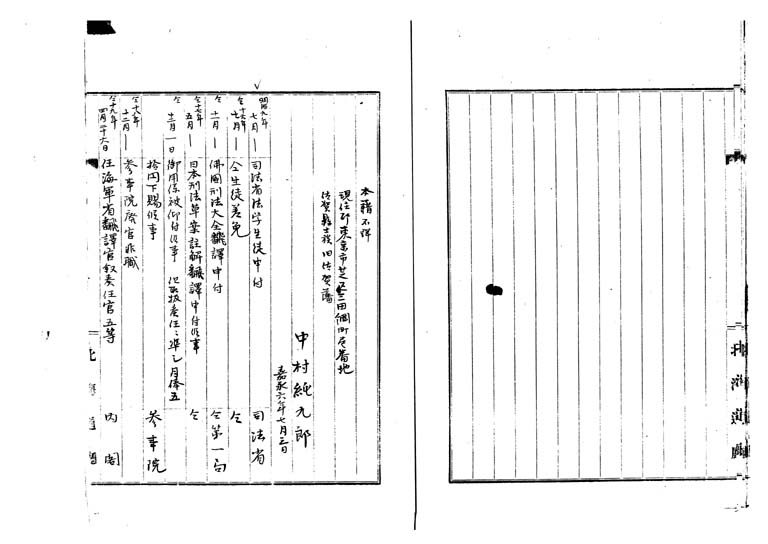 本籍不詳
現住所東京市芝区三田綱町壱番地
佐賀縣士族旧佐賀藩
中村純九郎
嘉永六年七月三日
明九年七月 司法省法学生徒申付 司法省
仝十六年七月 仝生徒差免 仝
仝十一月 佛國刑法大全飜譯申付 仝第一局
仝十七年五月 日本刑法草案註解飜譯申付候事 仝
仝十二月一日 御用係被仰付候事 但取扱奏任ニ準シ月俸五
拾円下賜候事 参事院
仝十八年十二月 参事院廃官非職
仝十九年四月二十六日 任海軍省飜譯官叙奏任官五等 内閣
北海道廳